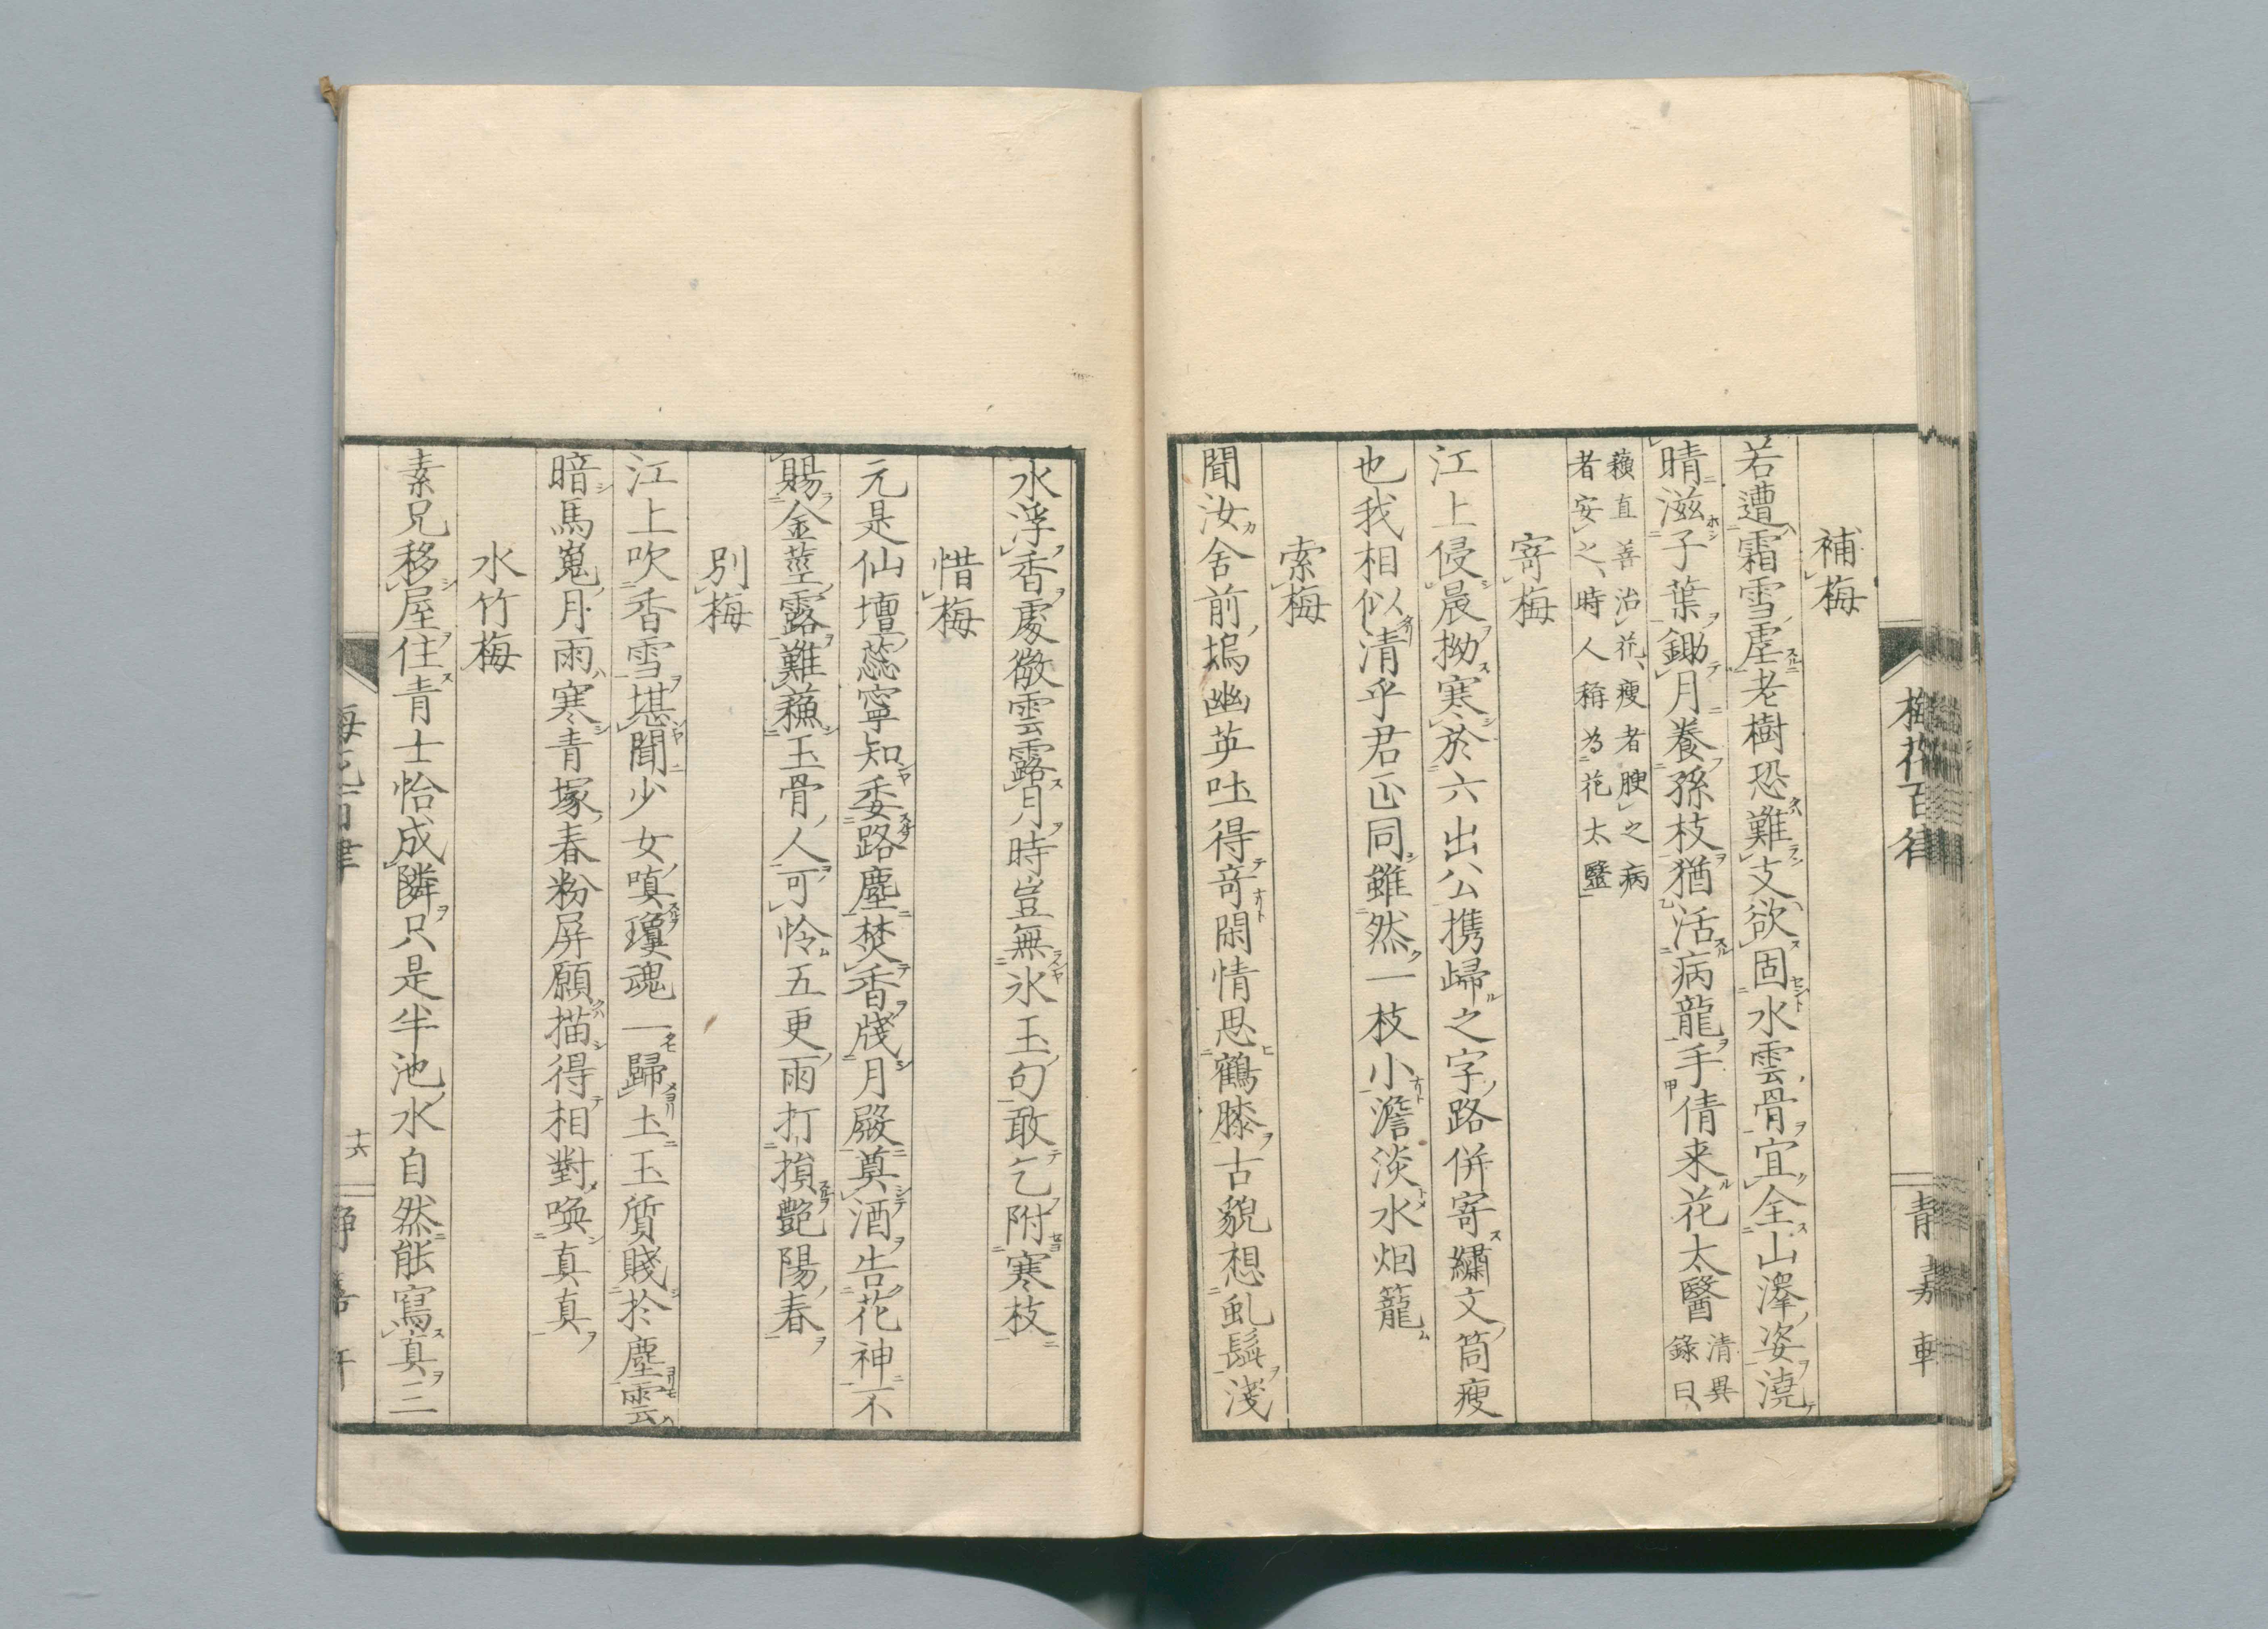 梅花百律
靜嘉軒
補梅
若遭霜雪虐老樹恐難支欲固水雲骨宜全山澤姿澆
晴滋子葉鋤月養孫枝猶活病龍手倩来花太醫清異錄曰
蘓直善治花瘦者腴之病
者安之時人稱為花太醫
寄梅
江上侵晨拗寒於六出公携歸之字路併寄繡文筒瘦
也我相似清乎君正同雖然一枝小澹淡水烟籠
索梅
聞汝舎前塢幽英吐得奇閑情思鶴膝古貌想虬髯淺
水浮香處微雲露月時豈無氷玉句敢乞附寒枝
惜梅
元是仙壇蕊寧知委路塵焚香牋月殿奠酒告花神不
賜金莖露難蘓玉骨人可怜五更雨打損艶陽春
別梅
江上吹香雪堪聞少女嗔瓊魂一歸土玉質賤於塵雲
暗馬嵬月雨寒青塚春粉屏願描得相對喚真真
水竹梅
素兄移屋住青士怡成隣只是半池水自然能寫真三
梅花百律
十六
靜嘉軒